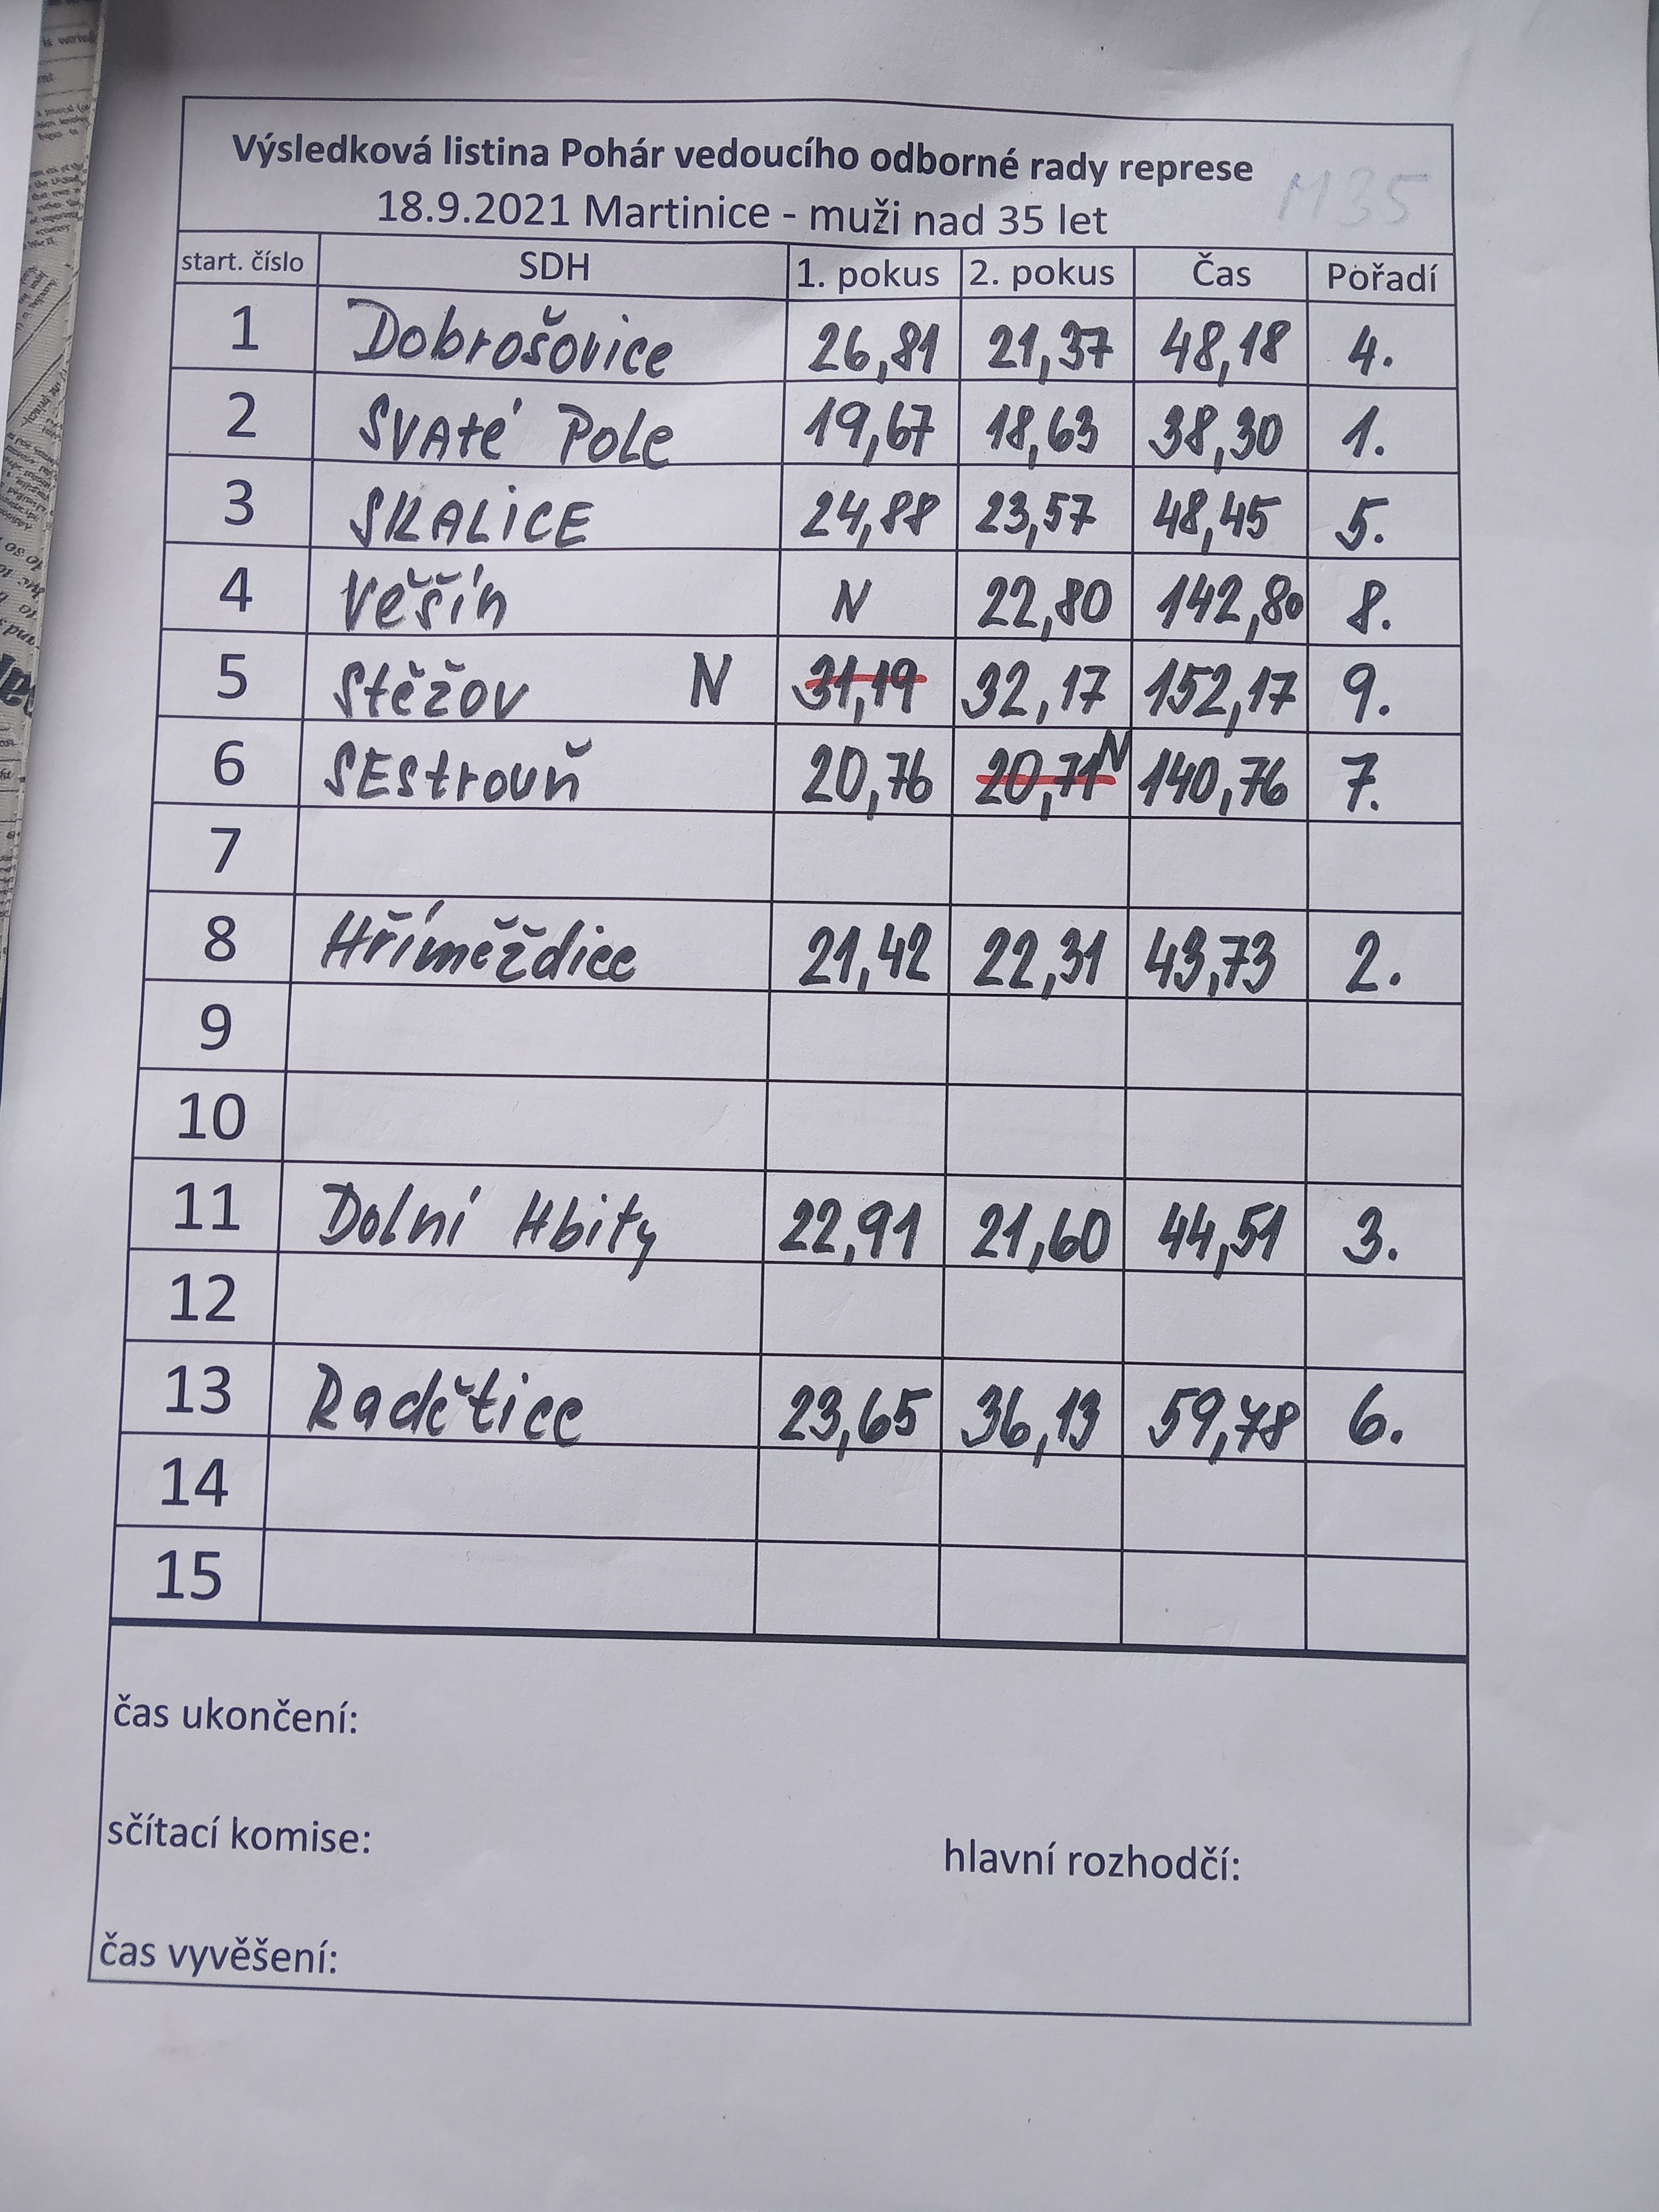 Výsledková listina Pohár vedoucího odborné rady represe
18.9.2021 Martinice - muži nad 35 let M35
start. číslo SDH 1. pokus 2. pokus Čas Pořadí
1 Dobrošovice 26,81 21,37 48,18 4.
2 SVAté Pole 19,67 18,63 38,30 1.
3 SKALiCE 24,88 23,57 48,45 5.
4 Věšín N 22,80 142,80 8.
5 Stěžov N 31,19 32,17 152,17 9.
6 SEstrouň 20,76 20,71 N 140,76 7.
7
8 Hříměždice 21,42 22,31 43,73 2.
9
10
11 Dolní Hbity 22,91 21,60 44,51 3.
12
13 Radětice 23,65 36,13 59,78 6.
14
15
čas ukončení:
sčítací komise:
hlavní rozhodčí:
čas vyvěšení: